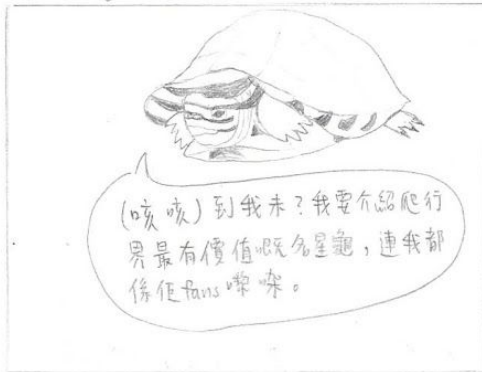 (咳咳)到我未？我要介紹爬行
界最有價值嘅名星龜，連我都
係佢fans嚟㗎。